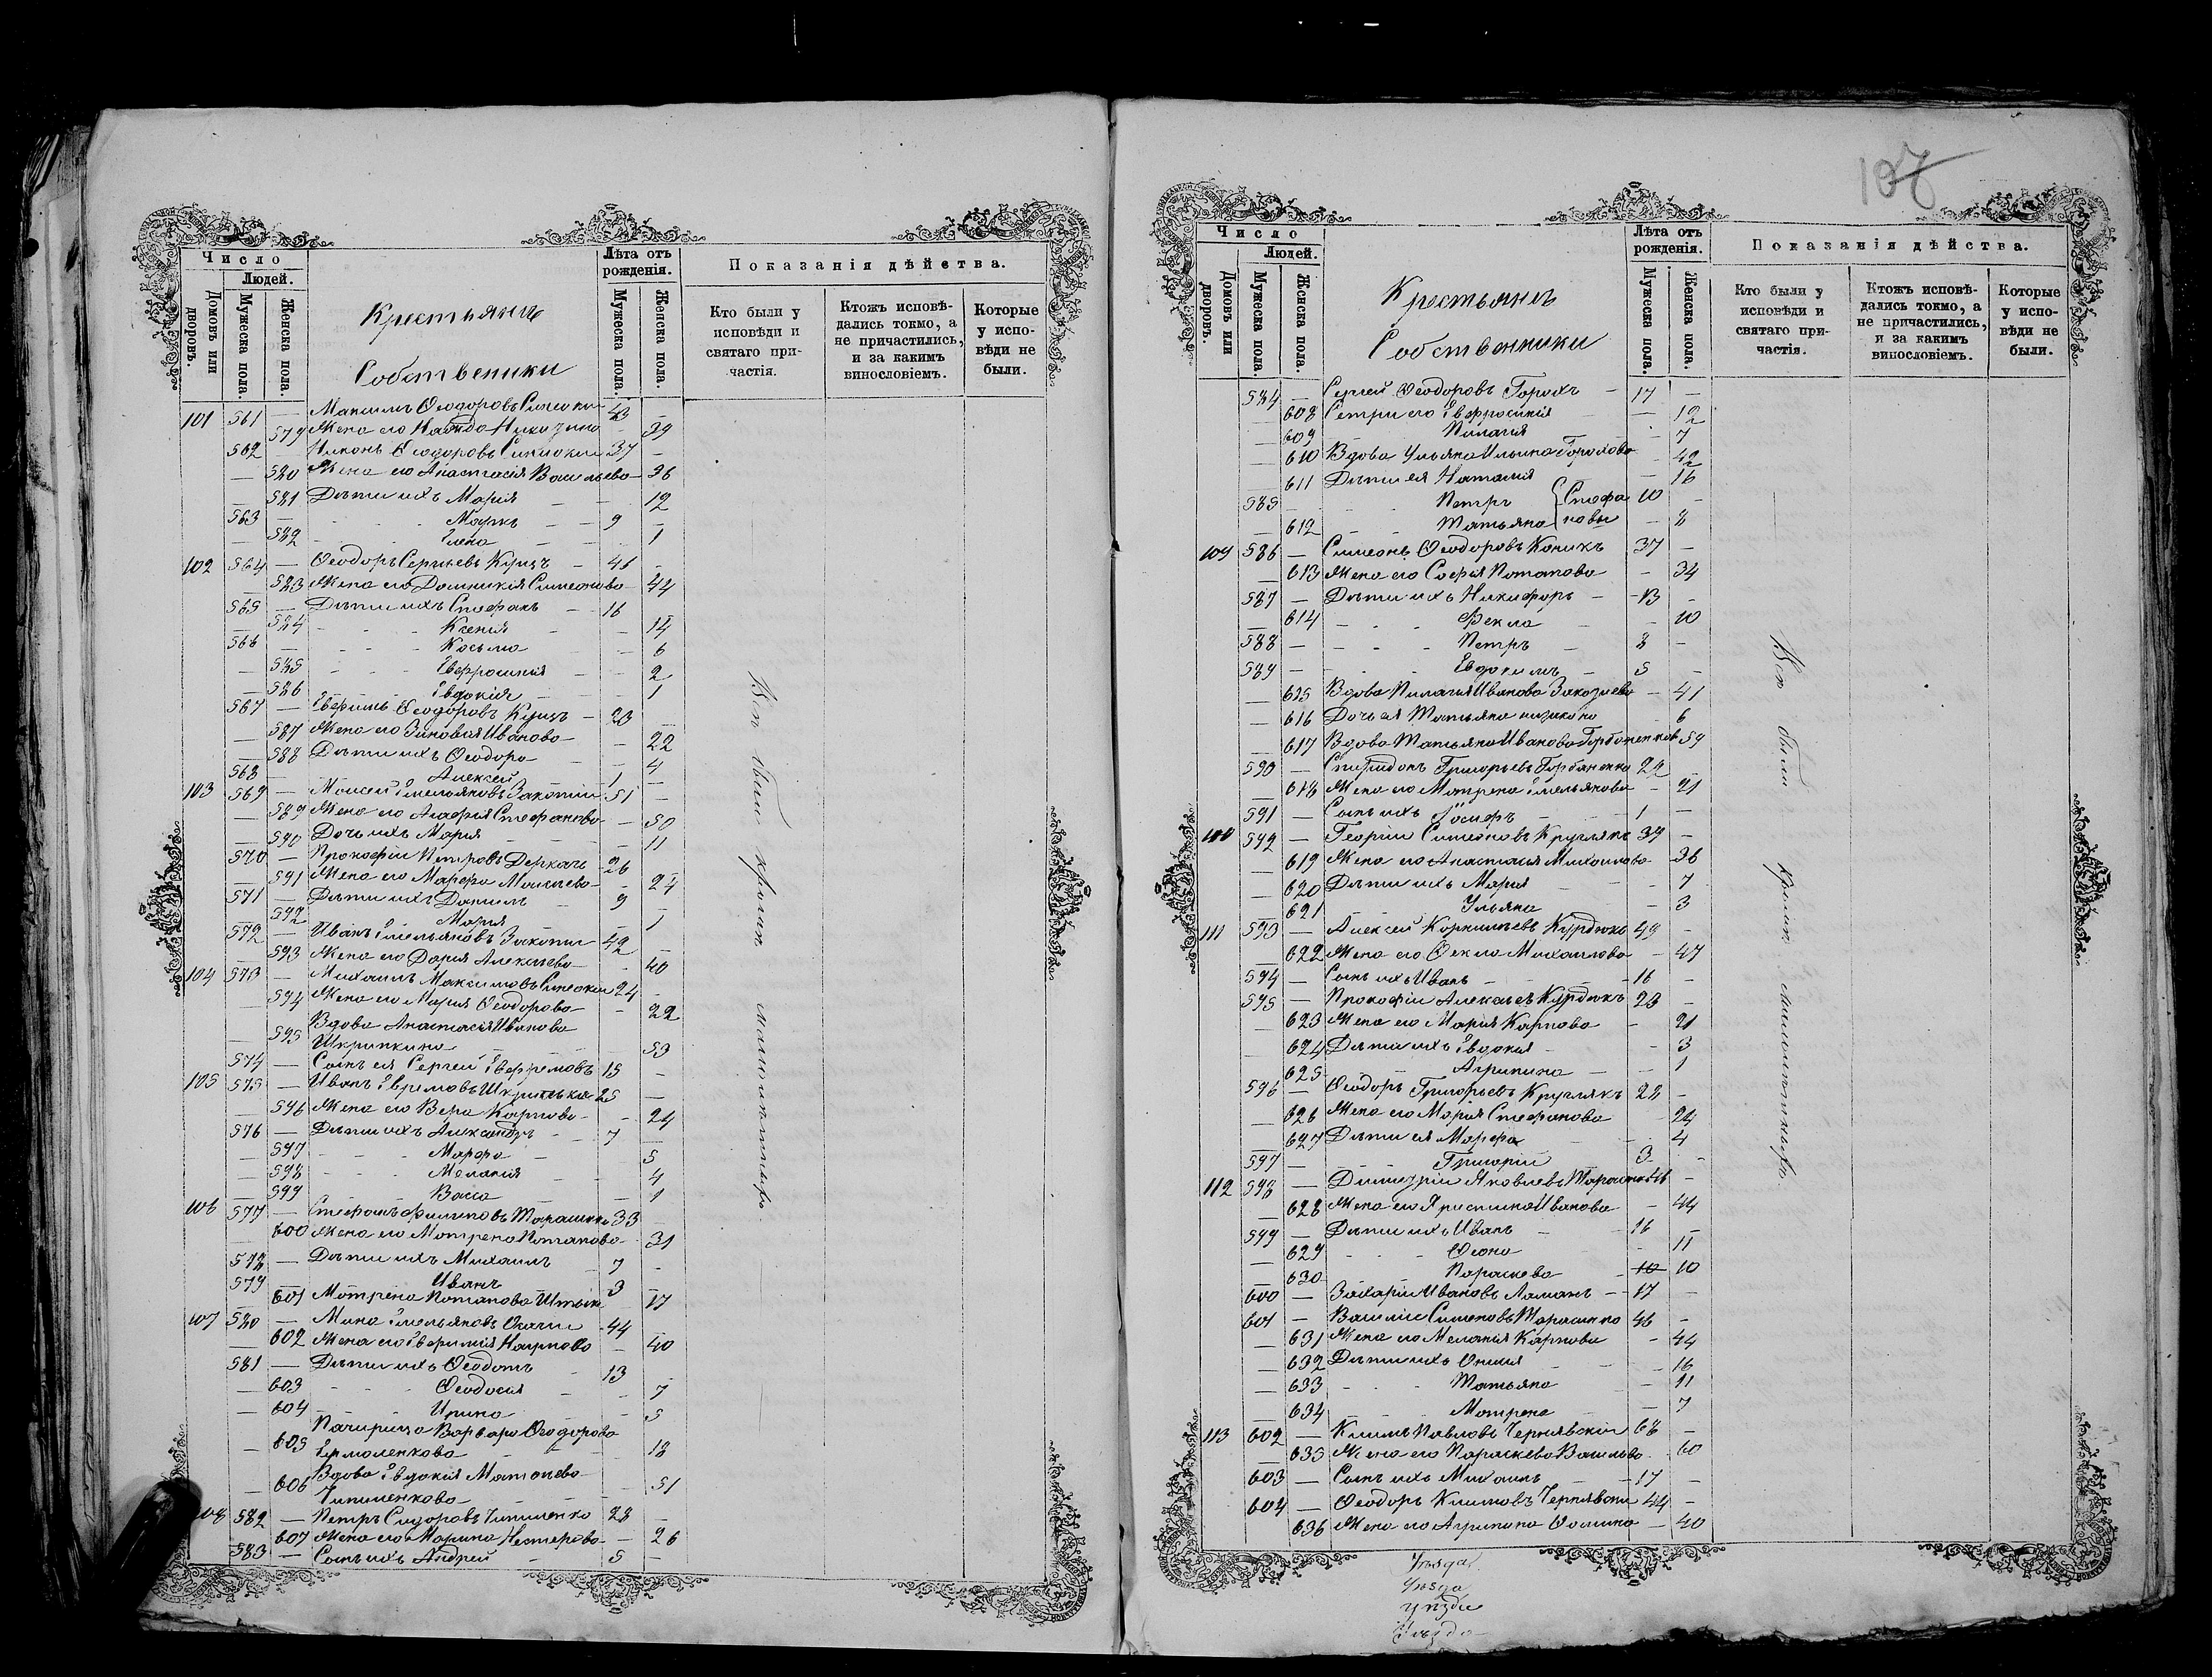 107
Число
Людей.
Домовъ или дворовъ.
Мужеска пола.
Женска пола.
Крестьяне
Собственики
Лѣта отъ рожденія.
Мужеска пола.
Женска пола.
Показанія дѣйства.
Кто были у исповѣди и святаго причастія.
Ктожъ исповѣдались токмо, а не причастились, и за какимъ винословіемъ.
Которые у исповѣди не были.
101 561 — Максимъ Ѳеодоровъ 43 —
— 579 Жена его — 39
562 — Ѳеодоровъ 37 —
— 580 Жена его Анастасія Васильева — 36
— 581 Дѣти ихъ Марія — 12
563 — Маркъ — 9 —
— 582 Елена — 1
102 564 — Ѳеодоръ Сергіевъ Куцъ — 41 —
— 583 Жена его Домникія Симеонова 44
565 — Дѣти ихъ Стефанъ — 16
— 584 Ксенія — 14
566 — Косьма — 6
— 585 Евфросинія — 2
— 586 Евдокія — 1
567 — Евфимъ Ѳеодоровъ Куцъ — 23
— 587 Жена его Зиновія Иванова — 22
— 588 Дѣти ихъ Ѳеодора — 4
568 — Алексей — 1 —
103 569 — Моисей Емельяновъ 51 —
— 589 Жена его Агафія Стефанова — 50
— 590 Дочь ихъ Марія — 11
570 — Прокофій Петровъ Деркачъ 26
— 591 Жена его Марфа Моисеева — 24
571 — Дѣти ихъ Даніилъ — 9 —
— 592 Марія — 1
572 — Иванъ Емельяновъ 42
— 593 Жена его Дарія Алексѣева — 40
104 573 — Михаилъ Максимовъ 24 —
— 594 Жена его Марія Ѳеодорова — 22
Вдова Анастасія Иванова
— 595 Шкрипкина — 53
574 — Сынъ ея Сергей Евфремовъ 15 —
105 575 — Иванъ Шкрипка 25 —
— 596 Жена его Вера Карпова — 24
576 — Дѣти ихъ Александръ — 7 —
— 597 Марфа — 5
— 598 Меланія — 4
— 599 Васса — 1
106 577 — Стефанъ Филиповъ 33
— 600 Жена его Мотрена Потапова 31
578 — Дѣти ихъ Михаилъ — 7 —
579 — Иванъ 3
— 601 Мотрена Потапова 17
107 580 — Мина Емельяновъ 44 —
— 602 Жена его Евфимія 40
581 — Дѣти ихъ Ѳеодотъ 13
— 603 Ѳеодосія — 7
— 604 Ирина — 5
Варвара Ѳеодорова
— 605 Ермоленкова — 18
Вдова Евдокія
— 606 51
Чипиленкова
108 582 — Петръ Сидоровъ Чипиленко 28 —
— 607 Жена его Марина Нестерова — 26
583 — Сынъ ихъ Андрей — 5 —
Всѣ были кромѣ малолѣтнихъ.
Число
Людей.
Домовъ или дворовъ.
Мужеска пола.
Женска пола.
Крестьяне
Собственники
Лѣта отъ рожденія.
Мужеска пола.
Женска пола.
Показанія дѣйства.
Кто были у исповѣди и святаго причастія.
Ктожъ исповѣдались токмо, а не причастились, и за какимъ винословіемъ.
Которые у исповѣди не были.
584 — Сергей Ѳеодоровъ Горохъ — 17 —
— 608 Сетри его Евфросинія — 12
— 609 Пилагія — 7
— 610 Вдова Ульяна Ильина Горохова — 42
— 611 Дѣти ея Наталія — 16
585 Петръ Стефа 10 —
— 612 Татьяна новы — 8
109 586 — Симеонъ Ѳеодоровъ Коникъ 37 —
— 613 Жена его Софія Потапова — 34
587 — Дѣти ихъ Никифоръ — 13 —
— 614 Фекла — 10
588 — Петръ — 8 —
589 — Евдокимъ — 5 —
— 615 Вдова Пилагія Иванова — 41
— 616 Дочь ея Татьяна 6
— 617 Вдова Татьяна Иванова Горбаненкова 59
590 — Спиридонъ Григорьевъ Горбаненко 22 —
— 618 Жена его Мотрена Емельянова — 21
591 — Сынъ ихъ Іосифъ — 1 —
110 592 — Георгій Симеоновъ Круглякъ 39 —
— 619 Жена его Анастасія Михайлова 36
— 620 Дѣти ихъ Марія — 7
— 621 Ульяна — 3
111 593 — Алексей Корниліевъ Курдюкъ 49 —
— 622 Жена его Ѳекла Михайлова — 47
594 — Сынъ ихъ Иванъ — 16 —
595 — Прокофій Алексѣевъ Курдюкъ 23 —
— 623 Жена его Марія Карпова — 21
— 624 Дѣти ихъ Евдокія — 3
— 625 Агрипина — 1
596 — Ѳеодоръ Григорьевъ Круглякъ 28 —
— 626 Жена его Марія Стефанова — 24
— 627 Дѣти ея Марфа — 4
597 — Григорій 3 —
112 598 — Димитрій Яковлевъ —
— 628 Жена его Христина Иванова — 44
599 — Дѣти ихъ Иванъ — 16 —
— 629 11
— 630 Параскева — 10 10
600 — Захарій Ивановъ — 17 —
601 — Василій 46 —
— 631 Жена его Меланія Карпова — 44
— 632 Дѣти ихъ — 16
— 633 Татьяна — 11
— 634 Мотрена — 7
113 602 — Климъ Павловъ Чернявскій 68 —
— 635 Жена его Параскева Васильева 60
603 — Сынъ ихъ Михаилъ — 17 —
604 — Ѳеодоръ Климовъ Чернявскій 44 —
636 Жена его Агрипина Ѳомина — 40
Всѣ были кромѣ малолѣтнихъ.
Уѣзда
Уѣзда
Уѣзда
Уѣзда